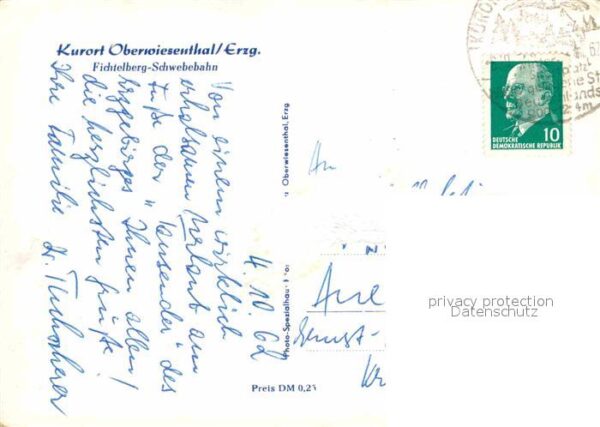 Kurort Oberwiesenthal/Erzg.
Fichtelberg-Schwebebahn
4. 10. 62
Von einem wirklich
erholsamen Urlaub am
Fuße der "Tausender" des
Erzgebirges Ihnen allen
die herzlichsten Grüße!
Ihre Familie Dr.
Preis DM 0,25
Photo-Spezialhaus
Oberwiesenthal, Erzg
An
Aue
Ernst-
KUROR
62
10
DEUTSCHE
DEMOKRATISCHE REPUBLIK
privacy protection
Datenschutz